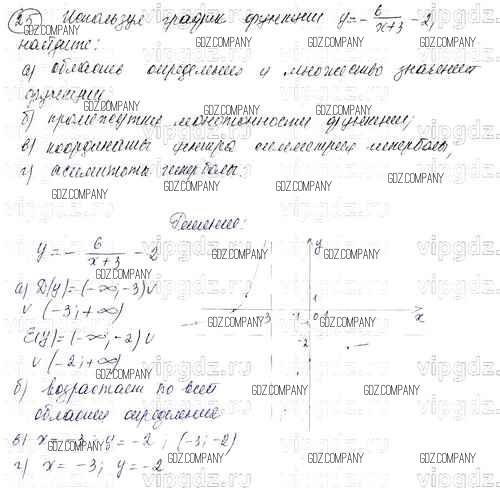 25 Используя график функции y = - 6/(x+3) - 2,
найдите:
а) область определения и множество значений
функции;
б) промежутки монотонности функции;
в) координаты центра симметрии гиперболы;
г) асимптоты гиперболы.
Решение:
y = - 6/(x+3) - 2
а) D(y) = (-∞; -3) ∪
∪ (-3; +∞)
E(y) = (-∞; -2) ∪
∪ (-2; +∞)
б) возрастает по всей
области определения
в) x = -3; y = -2; (-3; -2)
г) x = -3; y = -2
y
1
3 -1 0 1 x
-2
GDZ.COMPANY
vipgdz.ru